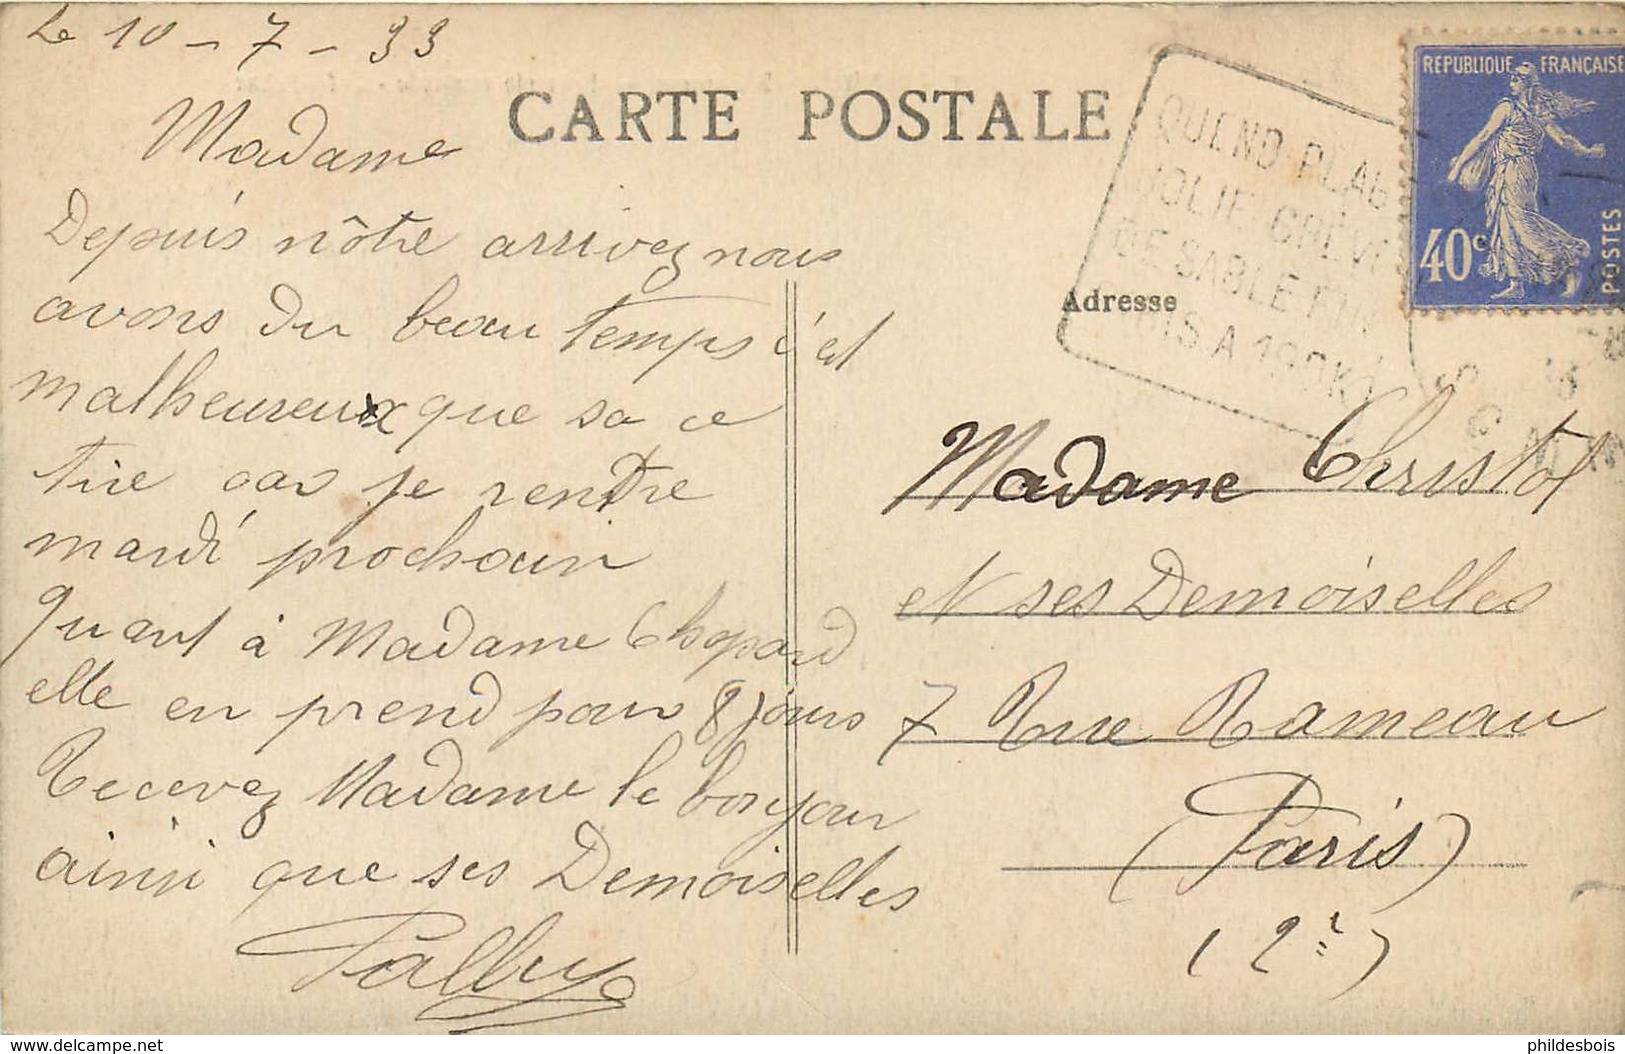 Le 10 - 7 - 33
CARTE POSTALE
Madame
Depuis nôtre arrivez nous
avons du beau temps c'est
malheureux que sa ce
tire car je rentre
mardi prochain
Quant à Madame Chopard
elle en prend pour 8 jours
Recevez Madame le bonjour
ainsi que ses Demoiselles
REPUBLIQUE FRANÇAISE
40c
POSTES
QUEND-PLAG
JOLIE CREV
DE SABLE FIN
IS A 190K
Adresse
Madame Christol
et ses Demoiselles
7 Rue Rameau
(Paris)
(2è)
www.delcampe.net
phildesbois